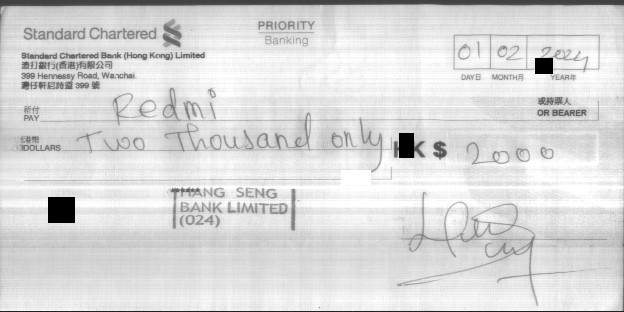 Standard Chartered
PRIORITY
Banking
Standard Chartered Bank (Hong Kong) Limited
渣打銀行(香港)有限公司
399 Hennessy Road, Wanchai.
灣仔軒尼詩道 399 號
01 02 2024
DAY日 MONTH月 YEAR年
祈付
PAY Redmi 或持票人
OR BEARER
港幣
DOLLARS Two Thousand only HK $ 2000
HANG SENG
BANK LIMITED
(024)